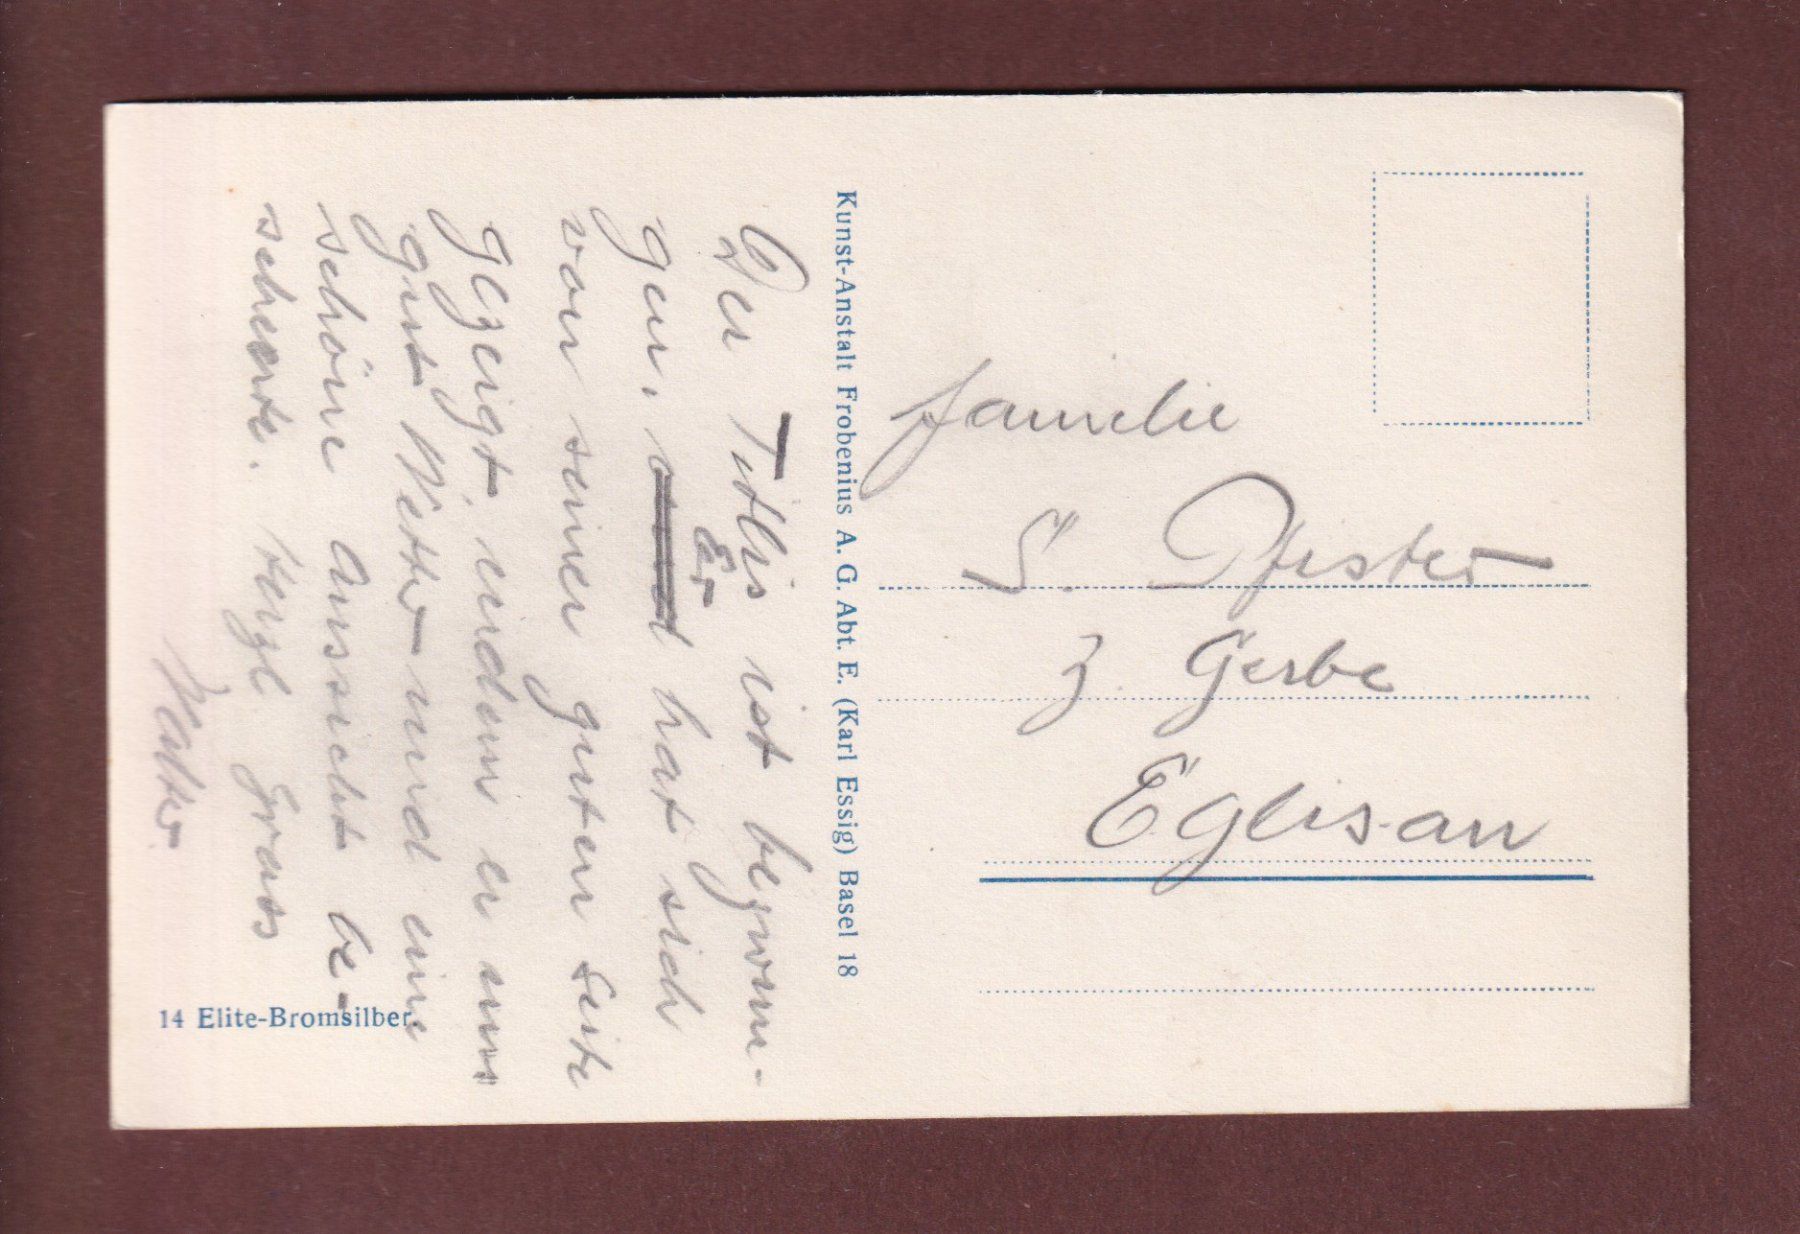 Der Titlis ist bezwun-
gen. Er hat sich
von seiner guten Seite
gezeigt, indem er uns
gut Wetter und eine
schöne Aussicht be-
scherte. Herzl. Gruss
Walter.
Kunst-Anstalt Frobenius A. G. Abt. E. (Karl Essig) Basel 18
14 Elite-Bromsilber.
Familie
S. Pfister
z. Gerbe
Eglisau